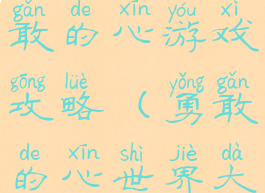 gǎn de xīn yóu xì
敢的心游戏
gōng lüè yǒng gǎn
攻略（勇敢
de xīn shì jiè dà
的心世界大